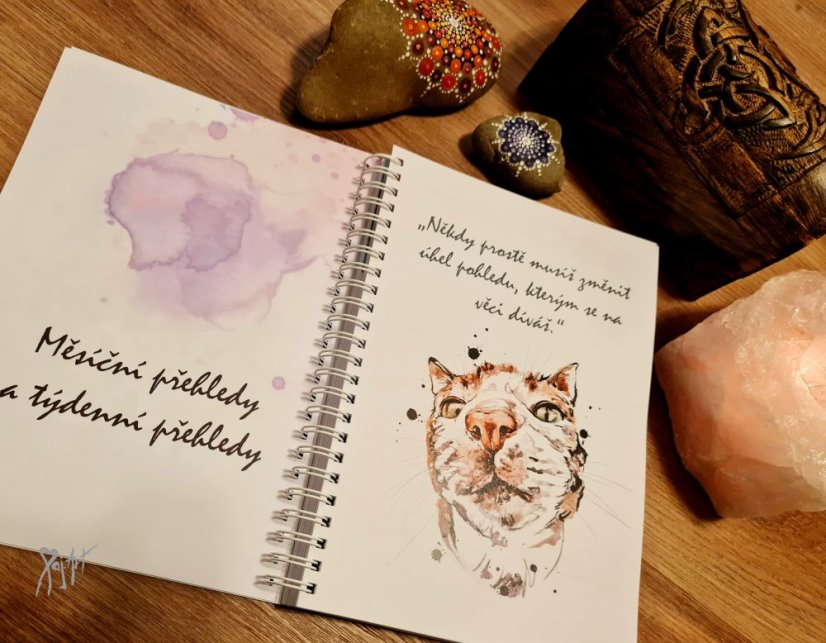 Měsíční přehledy
a týdenní přehledy
„Někdy prostě musíš změnit
úhel pohledu, kterým se na
věci díváš."